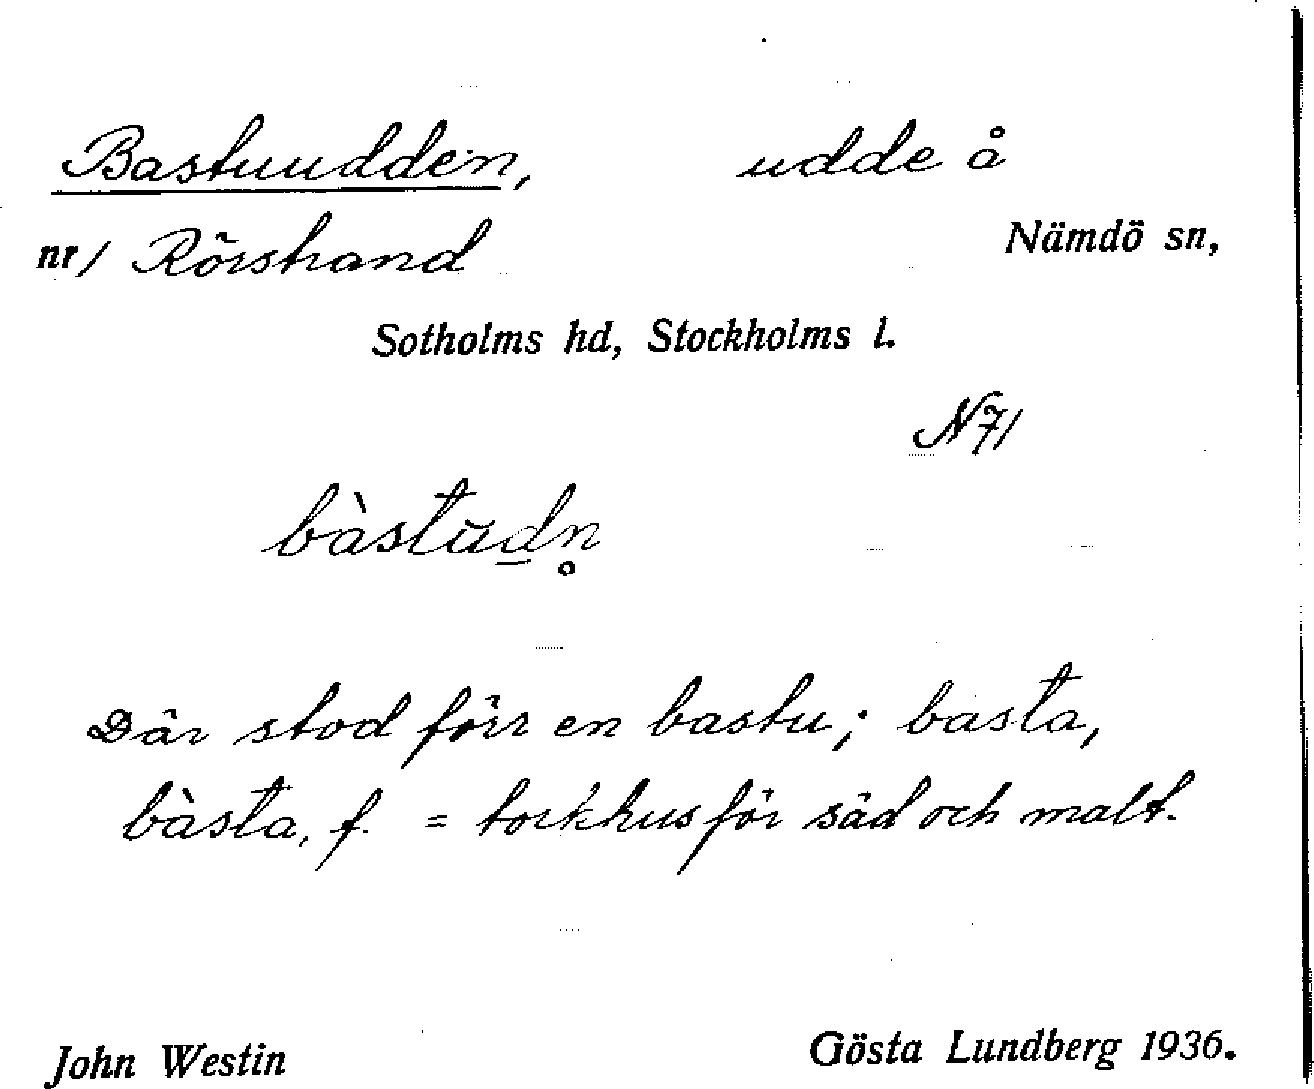 Bastuudden, udde å
nr/ Rörstrand Nämdö sn,
Sotholms hd, Stockholms l.
N71
bàstŭd̲n̥
Där stod förr en bastu; basta,
bàsta, f. = torkhus för säd och malt.
John Westin Gösta Lundberg 1936.